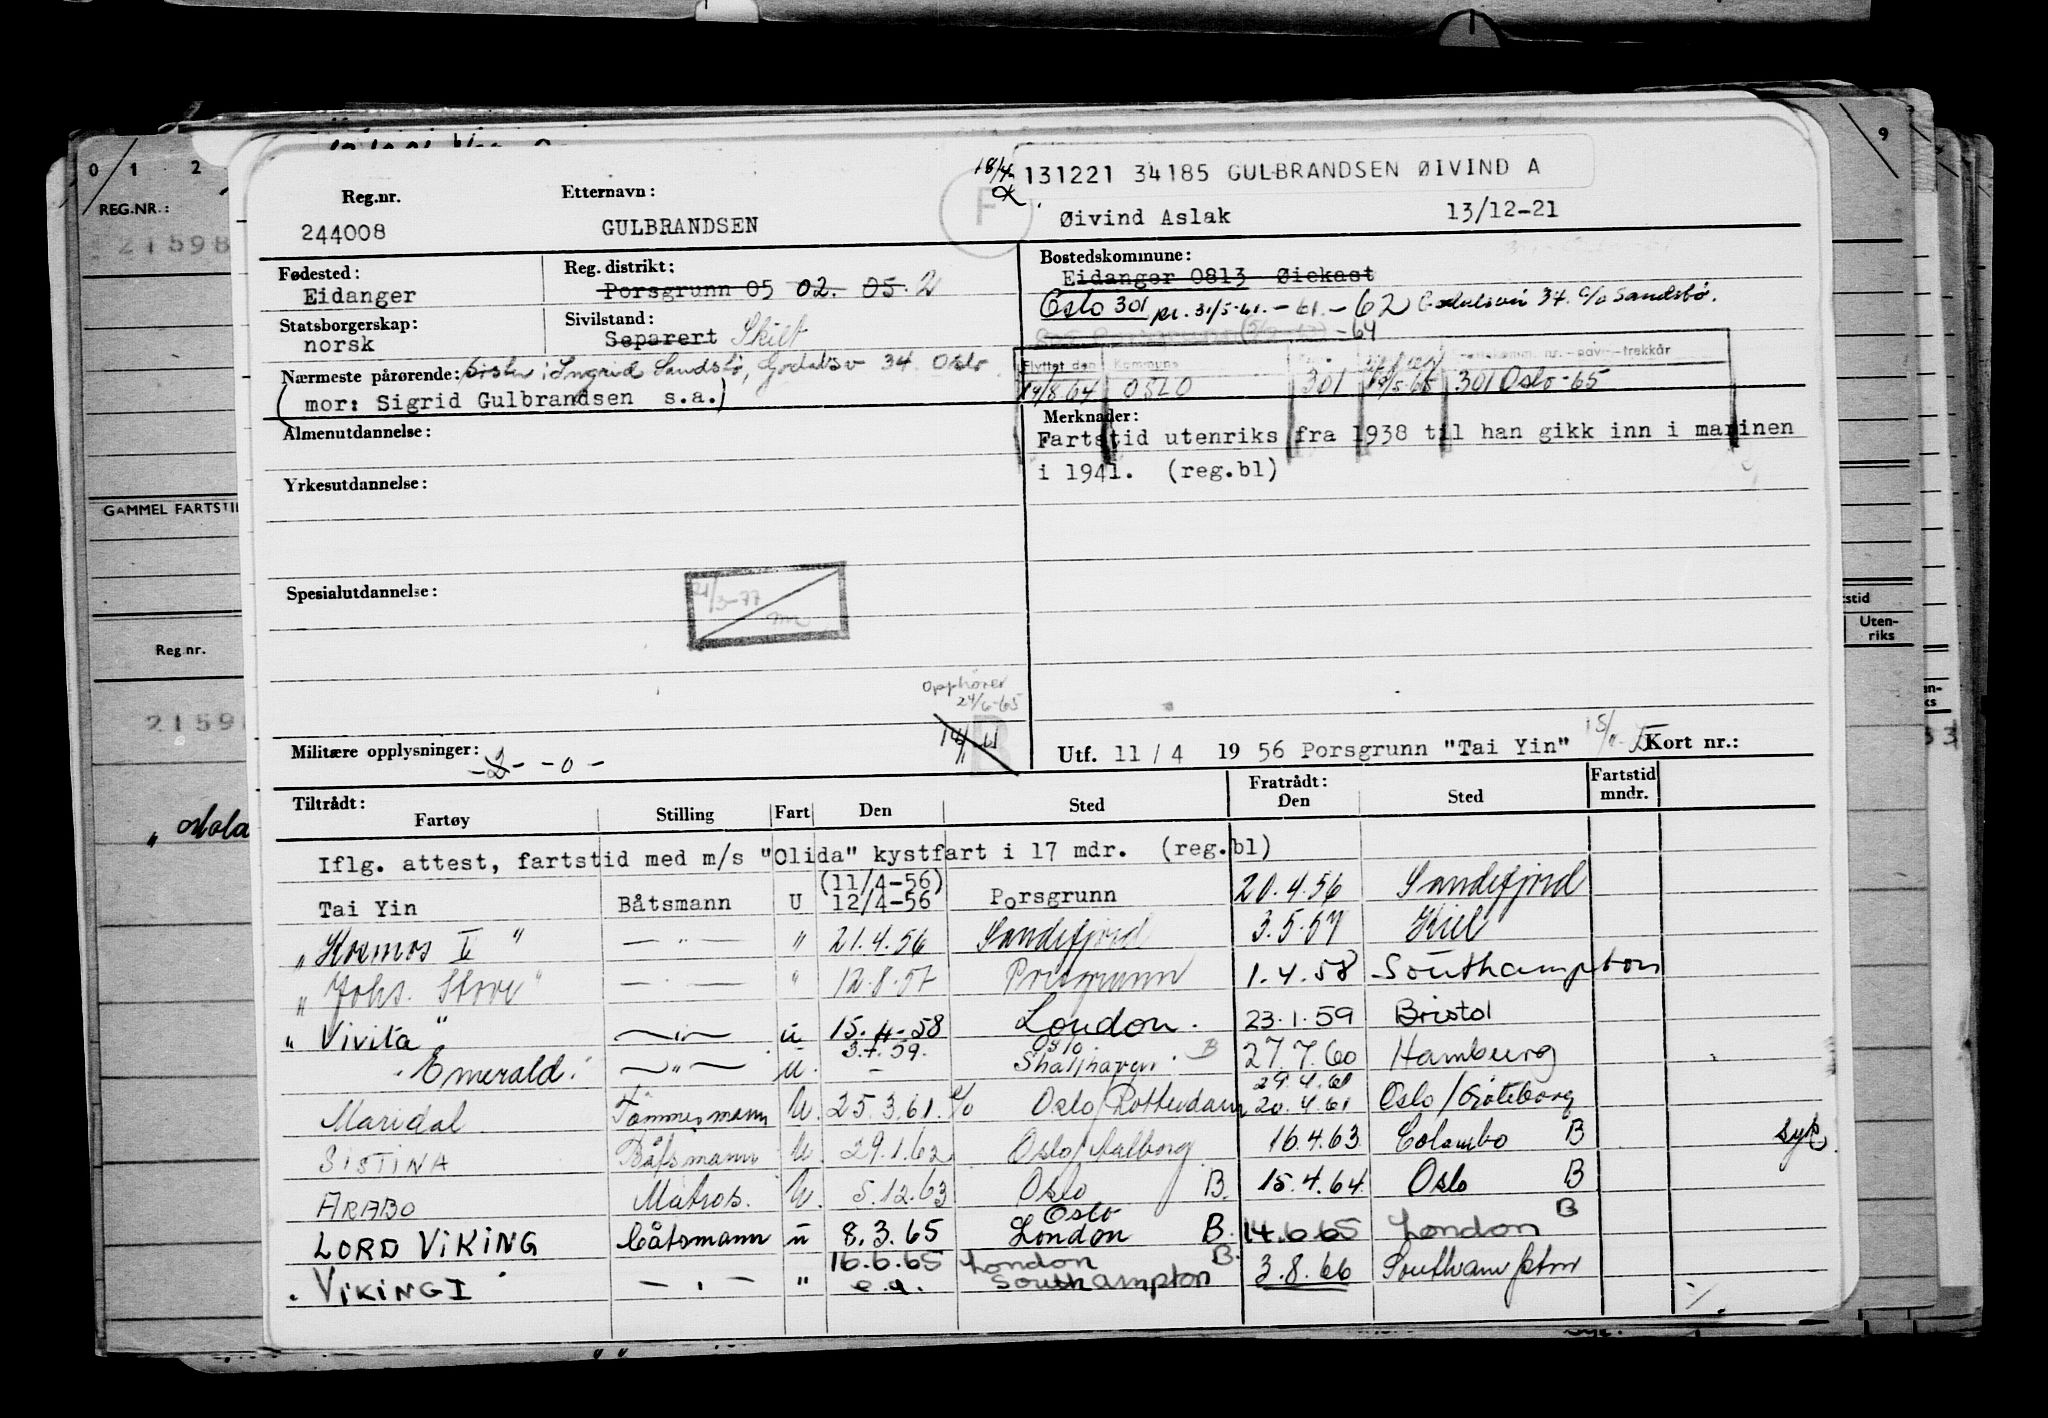 0 1 2
9
REG.NR.:
21598
GAMMEL FARTSTI
Reg.nr.
2159
Uten-
riks
131221 34185 GULBRANDSEN ØIVIND A
18/4
F
Reg.nr. Etternavn:
244008 GULBRANDSEN Øivind Aslak 13/12-21
Fødested: Reg. distrikt: Bostedskommune:
Eidanger Porsgrunn 05 02. 05. 2 Eidanger 0813 Øiekast
Oslo 301 pr. 31/5-61. - 61. - 62 34 c/o Sandsbø.
Statsborgerskap: Sivilstand:
norsk Separert Skilt
-64
Flyttet den Kommune
Nærmeste pårørende: Søster: Ingrid Sandsbø, Godalsv 34 Oslo
19/8.64 OSLO 301 19/5-65 301 Oslo-65
(mor: Sigrid Gulbrandsen s.a.)
Almenutdannelse: Merknader:
Fartstid utenriks fra 1938 til han gikk inn i marinen
i 1941. (reg.bl)
Yrkesutdannelse:
Spesialutdannelse:
21/3-77
Opphører
24/6-65
Militære opplysninger: - - 0 -
Utf. 11 / 4 19 56 Porsgrunn "Tai Yin" Kort nr.:
Tiltrådt: Fratrådt: Fartstid
Fartøy Stilling Fart Den Sted Den Sted mndr.
Iflg. attest, fartstid med m/s "Olida" kystfart i 17 mdr. (reg.bl)
(11/4-56)
Tai Yin Båtsmann U 12/4-56 Porsgrunn 20.4.56 Sandefjord
"Kosmos V" — " — " 21.4.56 Sandefjord 3.5.57 Kiel
"Johs. Stove" — " — " 12.8.57 Porsgrunn 1.4.58 Southampton
"Vivita" — " — u 15.4-58 London. 23.1.59 Bristol
3.7.59. Oslo
"Emerald" — " — u. - Skallhaven B 27.7.60 Hamburg
29.4.61
Maridal Tømmermann U. 25.3.61. Oslo/Rotterdam 20.4.61 Oslo/Göteborg
SISTINA Båtsmann U. 29.1.62 Oslo/Aalborg 16.4.63 Colombo B syk.
ARABO Matros. U. 5.12.63 Oslo B. 15.4.64 Oslo B
Oslo
LORD VIKING Båtsmann u 8.3.65 London B. 14.6.65 London B
16.6.65 London B.
VIKING I — " — " e.a. Southampton 3.8.66 Southampton